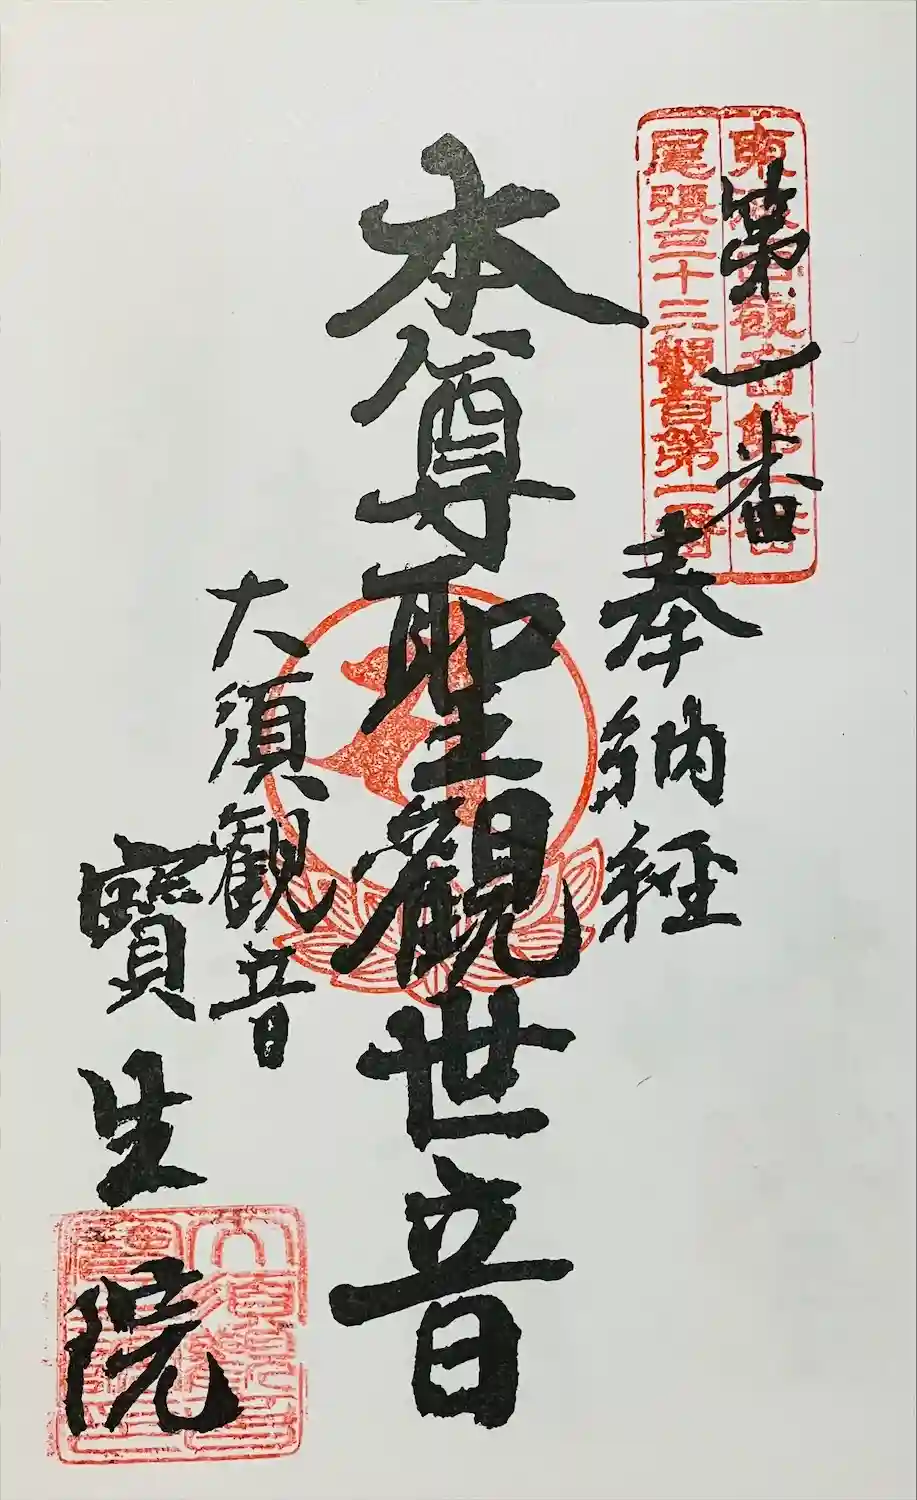 第一番
尾張三十三観音第一番
奉納経
本尊聖観世音
大須観音
寶生院